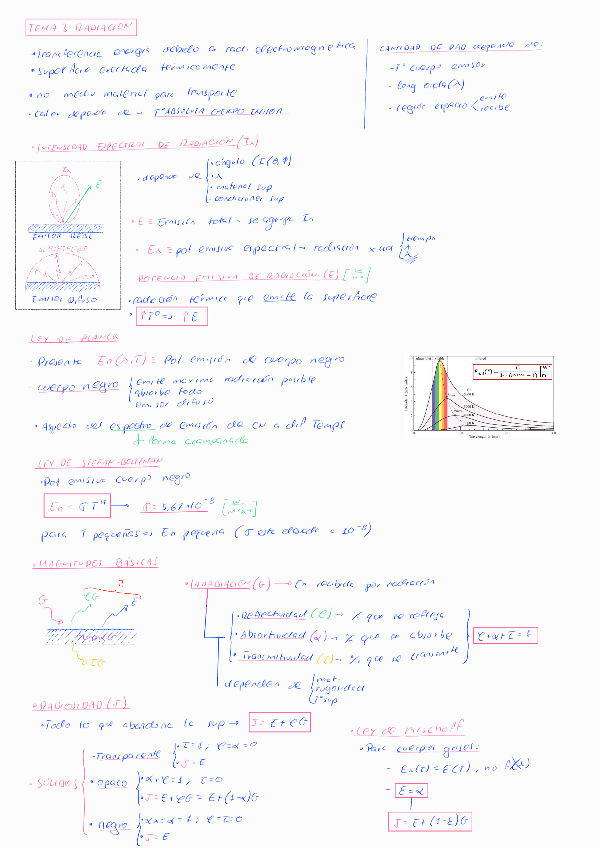 TEMA 3 RADIACIÓN
• Transferencia energía debido a rad. electromagnetica
• Superficie excitada termicamente
• no medio material para transporte
• Calor depende de → Tª ABSOLUTA CUERPO EMISOR
CANTIDAD DE RAD depende de:
- Tª cuerpo emisor
- long onda (λ)
- región espacio
emite
recibe
• INTENSIDAD ESPECTRAL DE RADIACIÓN (Iλ)
• depende de
• ángulo (I(θ,ϕ)
• λ
• material sup
• condiciones sup
Iλ
E
EMISOR REAL
SEMIESFERA
EMISOR DIFUSO
• E ≡ Emisión total → se agrupa Iλ
• Eλ ≡ pot emisiva espectral → radiación x ud
tiempo
λ
POTENCIA EMISIVA DE RADIACIÓN (E)
• radiación térmica que emite la superficie
• ↑Tª ⇒ ↑E
LEY DE PLANCK
• Presente En(λ,T) ≡ Pot emisión de cuerpo negro
cuerpo negro
emite maximo radiación posible
absorbe todo
emisor difuso
• Aspecto del espectro de emisión de CN a difª Temps
↓ forma acampanada
LEY DE STEFAN-BOLTZMAN
• Pot emisiva cuerpo negro
En = σ T⁴ → σ = 5,67·10⁻⁸
para T pequeñas ⇒ En pequeña (σ esta elevado a 10⁻⁸)
• MAGNITUDES BÁSICAS
G
ρG
E
αG
τG
• IRRADIACIÓN (G) → En recibida por radiación
• Reflectividad (ρ) → % que se refleja
• Absortividad (α) → % que se absorbe
• Transmitividad (τ) → % que se transmite
ρ+α+τ=1
dependen de
mat.
rugosidad
Tª sup
• RADIOSIDAD (J)
• Todo lo que abandona la sup → J = E + ρG
- SÓLIDOS
• Transparente
• τ=1; ρ=α=0
• J=E
• opaco
• α+ρ=1; τ=0
• J=E+ρG = E+(1-α)G
• negro
• αλ=α=1; ρ=τ=0
• J=E
• LEY de Kirschoff
• Para cuerpos grises:
- ελ(T) = ε(T), no f(λ)
- ε=α
J=E+(1-ε)G